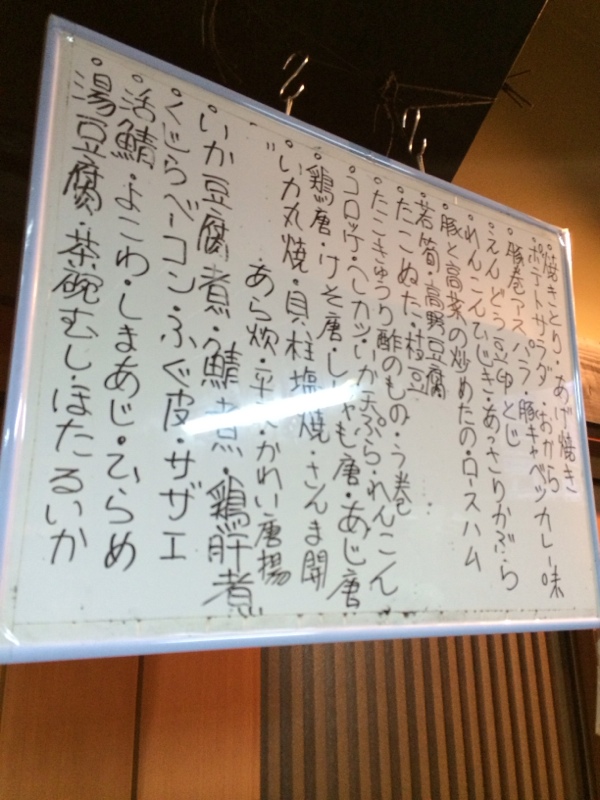 。焼きとり・あげ焼き
ポテトサラダ・おから
。豚巻アスパラ・豚キャベツカレー味
。えんどう豆卵とじ
。れんこんひじき・あっさりかぶら
。豚と高菜の炒めたの・ロースハム
。若筍・高野豆腐
。たこぬた・枝豆
。たこきゅうり酢のもの・う巻
。コロッケ・ヘレカツ・いか天ぷら・れんこん
。鶏唐・げそ唐・ししゃも唐・あじ唐
。いか丸焼・貝柱塩焼・さんま開
〃 あら炊・かれい唐揚
。いか豆腐煮・鯖煮・鶏肝煮
。くじらベーコン・ふぐ皮・サザエ
。活鯖・よこわ・しまあじ。ひらめ
。湯豆腐・茶碗むし・ほたるいか